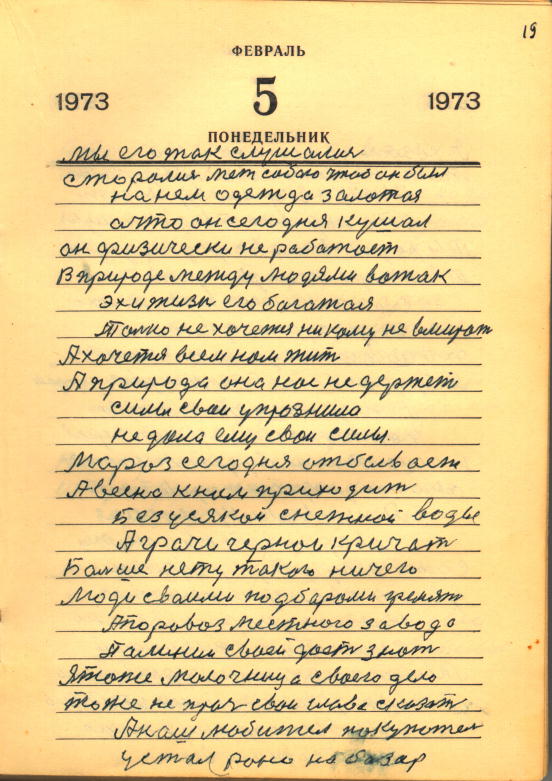 19
ФЕВРАЛЬ
1973 5 1973
ПОНЕДЕЛЬНИК
Мы его так слушалия
сторалия меж собою чтоб он был
на нем одежда залотая
ачто он сегодня кушал
он физически не работает
В природе между людями вотак
эхижизн его багатая
Толко не хочетя никому не вмират
А хочетя всем нам жит
А природа она нас не держет
силы свои упрознила
не дала ему свои силы.
Мароз сегодня отбывает
Авесна к ним приходит
Без усякой снежной воды
А грачи чернои кричат
Болше нету такого ничего
Люди своими подборами гремят
Апоровоз местного завода
Палинии своей дает знат
Ятоже молочница своего дело
тоже не прач свои слава сказат
Анаш любител покупател
устал рано на базар